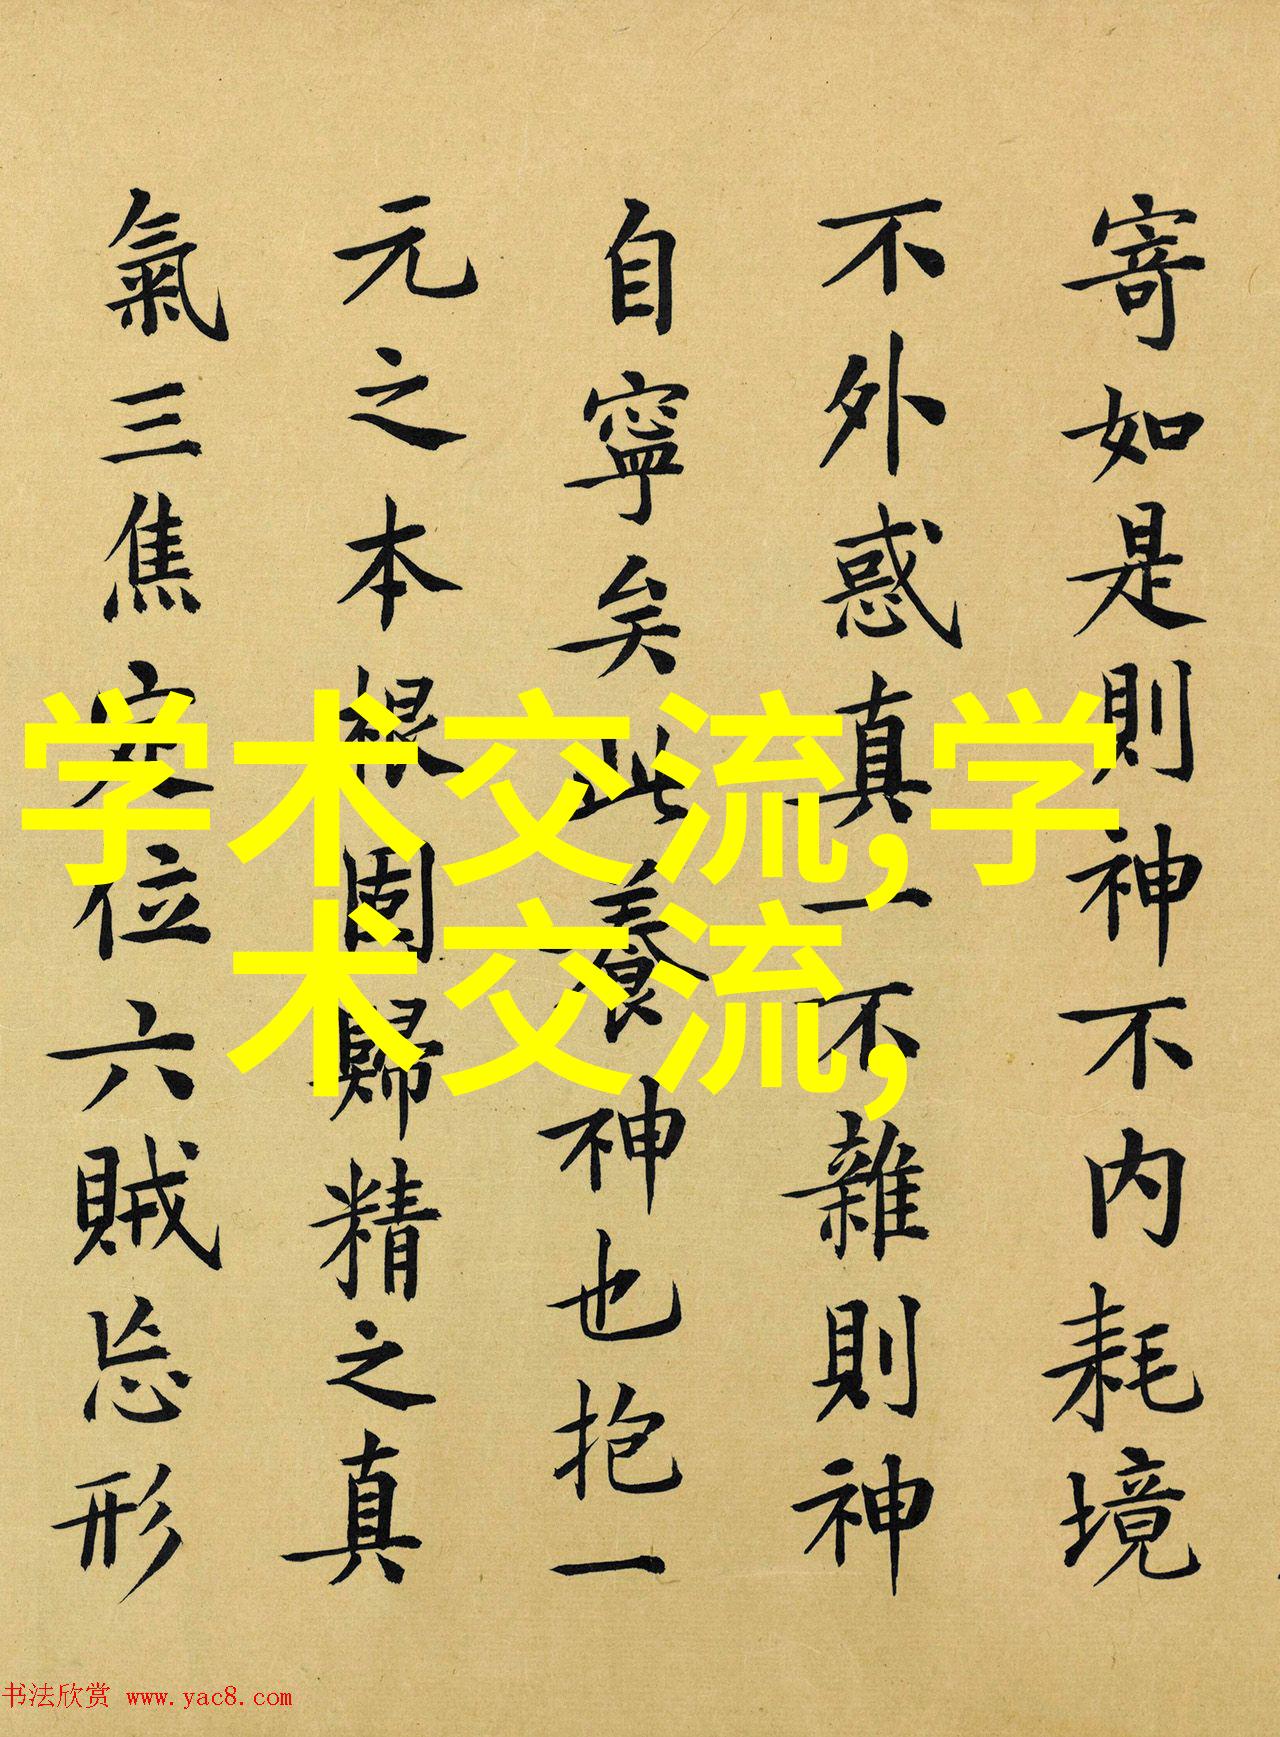 寄如是則神不内耗境
不外惑真一不雜則神
自寧矣此養神也抱一
元之本根固歸精之真
氣三焦定位六賊忘形
学术交流,学
术交流,
书法欣赏 www.yac8.com